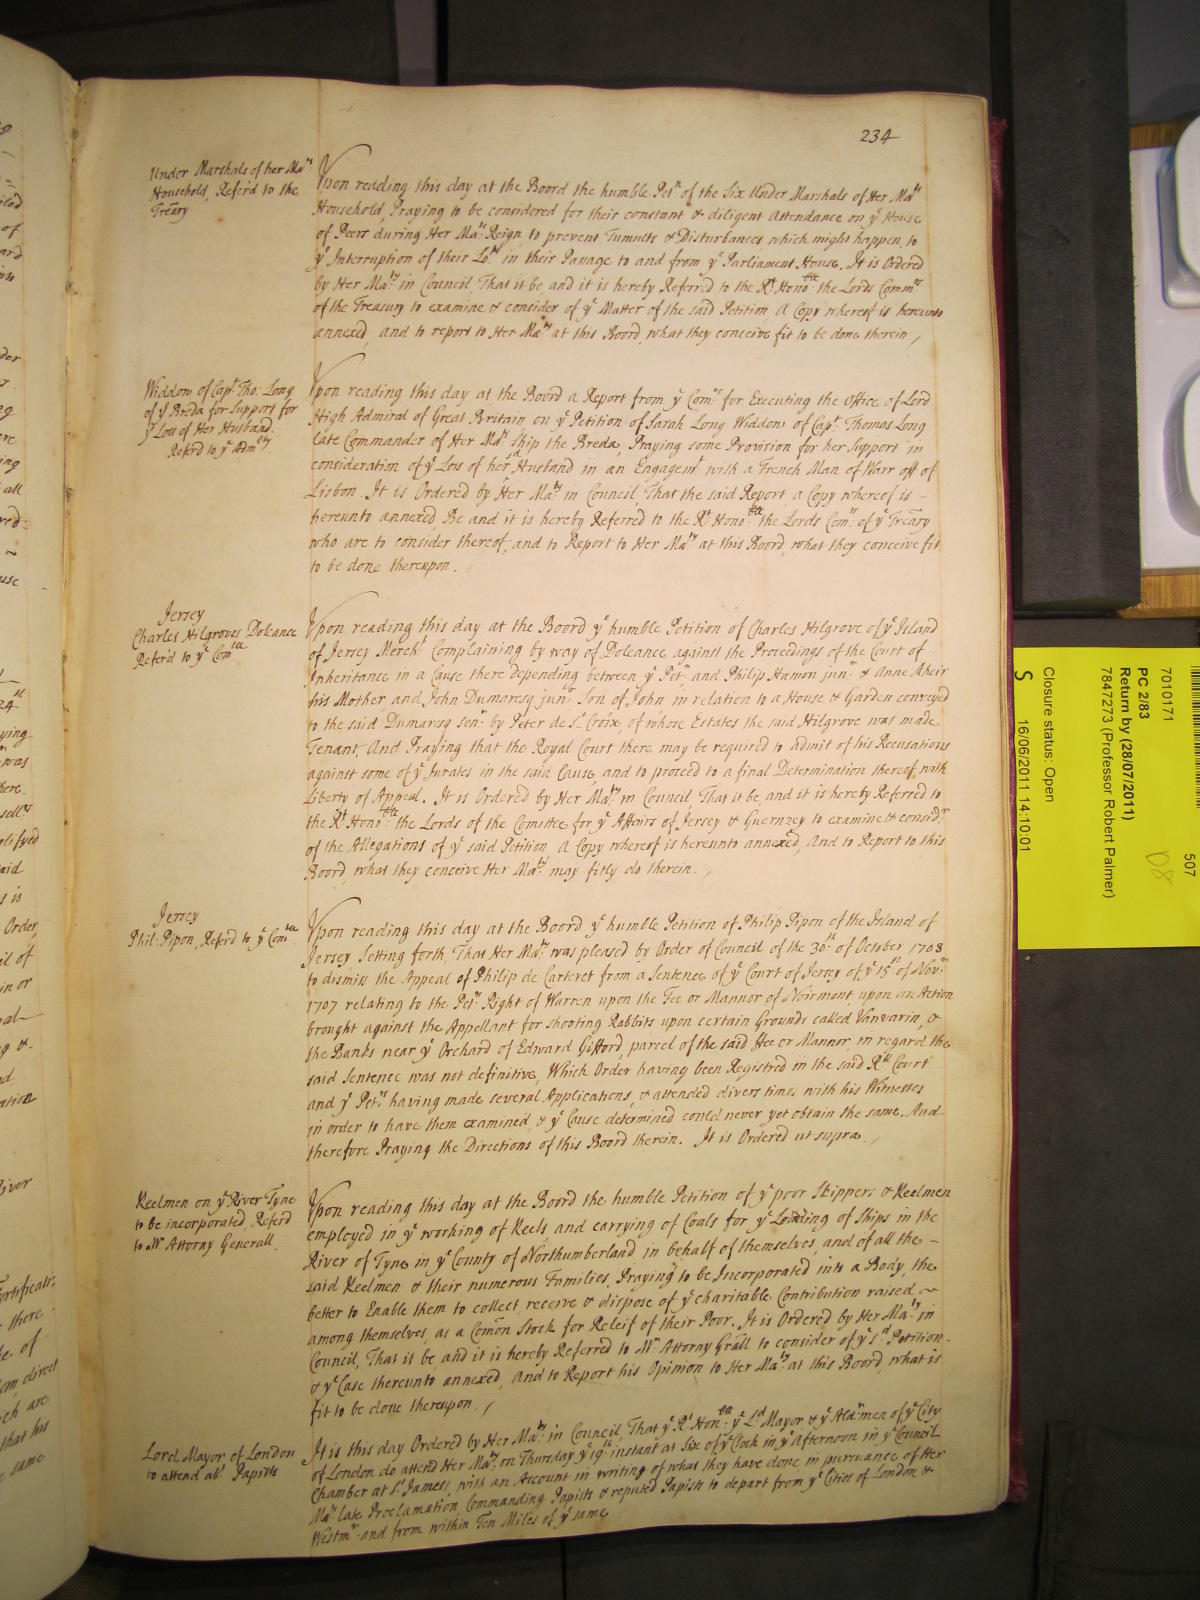 234
Under Marshals of her Ma.ts
Household, Referd to the
Treãry
Upon reading this day at the Board the humble Pet.n of the Six Under Marshals of Her Ma.ts
Household, Praying to be considered for their constant & diligent Attendance on y.e House
of Peers during Her Ma.ts Reign, to prevent Tumults & Disturbances which might happen, to
y.e Interruption of their Lo.ps in their Passage to and from y.e Parliament House. It is Ordered
by Her Ma.ty in Council, That it be, and it is hereby Referred to the R.t Hono.ble the Lords Comm.rs
of the Treasury to examine & consider of y.e Matter of the said Petition, a Copy whereof is hereunto
annexed, and to report to Her Ma.ty at this Board, what they conceive fit to be done therein./
Widdow of Cap.t Tho: Long
of y.e Breda for Support for
y.e Loss of Her Husband.
Referd to y.e Adm.lty
Upon reading this day at the Board a Report from y.e Com.rs for Executing the Office of Lord
High Admiral of Great Britain, on y.e Petition of Sarah Long Widdow of Cap.t Thomas Long
late Commander of Her Ma.ts Ship the Breda, Praying some Provision for her Support in
consideration of y.e Loss of her s.d Husband in an Engagem.t with a French Man of Warr off of
Lisbon. It is Ordered by Her Ma.ty in Council, That the said Report, a Copy whereof is -
hereunto annexed, Be and it is hereby Referred to the R.t Hono.ble the Lords Com.rs of y.e Treãry
who are to consider thereof, and to Report to Her Ma.ty at this Board, what they conceive fit
to be done thereupon.
Jersey
Charles Hilgroves Doleance
Referd to y.e Com.tee
Upon reading this day at the Board y.e humble Petition of Charles Hilgrove of y.e Island
of Jersey Merch.t Complaining by way of Doleance against the Proceedings of the Court of
Inheritance in a Cause there depending between y.e Pet.r and Philip Hamon jun.r & Anne Aheir
his Mother, and John Dumaresq jun.r Son of John in relation to a House & Garden conveyed
to the said Dumaresq sen.r by Peter de S.t Croix, of whose Estates the said Hilgrove was made
Tenant, And Praying that the Royal Court there may be required to admit of his Recusations
against some of y.e Jurates in the said Cause, and to proceed to a final Determination thereof, with
Liberty of Appeal. It is Ordered by Her Ma.ty in Council, That it be, and it is hereby Referred to
the R.t Hono.ble the Lords of the Comittee for y.e Affairs of Jersey & Guernzey to examine & consid.r
of the Allegations of y.e said Petition, a Copy whereof is hereunto annexed, And to Report to this
Board, what they conceive Her Ma.ty may fitly do therein./
Jersey
Phil: Pipon, Referd to y.e Com.tee
Upon reading this day at the Board y.e humble Petition of Philip Pipon of the Island of
Jersey Setting forth, That Her Ma.ty was pleased by Order of Council of the 30.th of October 1708
to dismiss the Appeal of Philip de Carteret from a Sentence of y.e Court of Jersey of y.e 15.th of Nov.r
1707 relating to the Pet.rs Right of Warren upon the Fee or Mannor of Noirmont upon an Action
brought against the Appellant for shooting Rabbits upon certain Grounds called Vanvarin, &
the Banks near y.e Orchard of Edward Gifford, parcel of the said Fee or Mannor, in regard the
said Sentence was not definitive, Which Order having been Registred in the said R.ll Court
and y.e Pet.r having made several Applications, & attended divers times with his Witnesses
in order to have them examined, & y.e Cause determined could never yet obtain the same. And
therefore Praying the Directions of this Board therein. It is Ordered ut supra./
Keelmen on y.e River Tyne
to be incorporated, Referd
to M.r Attorny Generall.
Upon reading this day at the Board the humble Petition of y.e poor Skippers & Keelmen
employed in y.e working of Keels, and carrying of Coals for y.e Loading of Ships in the
River of Tyne in y.e County of Northumberland in behalf of themselves, and of all the -
said Keelmen & their numerous Families, Praying to be Incorporated into a Body, the
better to Enable them to collect, receive & dispose of y.e charitable Contribution raised ~
among themselves, as a Com̃on Stock for Releif of their Poor. It is Ordered by Her Ma.ty in
Council, That it be and it is hereby Referred to M.r Attorny Grãll to consider of y.e s.d Petition -
& y.e Case thereunto annexed, And to Report his Opinion to Her Ma.ty at this Board, what is
fit to be done thereupon./
Lord Mayor of London
to attend ab.t Papists
It is this day Ordered by Her Ma.ty in Council, That y.e R.t Hon.ble y.e L.d Mayor & y.e Ald.rmen of y.e City
of London do attend Her Ma.ty on Thursday y.e 19.th instant at Six of y.e Clock in y.e Afternoon in y.e Council
Chamber at S.t James's, with an Account in writing of what they have done in pursuance of Her
Ma.ts late Proclamation, Commanding Papists & reputed Papists to depart from y.e Cities of London &
Westm.r and from within Ten Miles of y.e same.
7010171
507
PC 2/83
Return by (28/07/2011)
7847273 (Professor Robert Palmer)
D8
Closure status: Open
S
16/06/2011 14:10:01